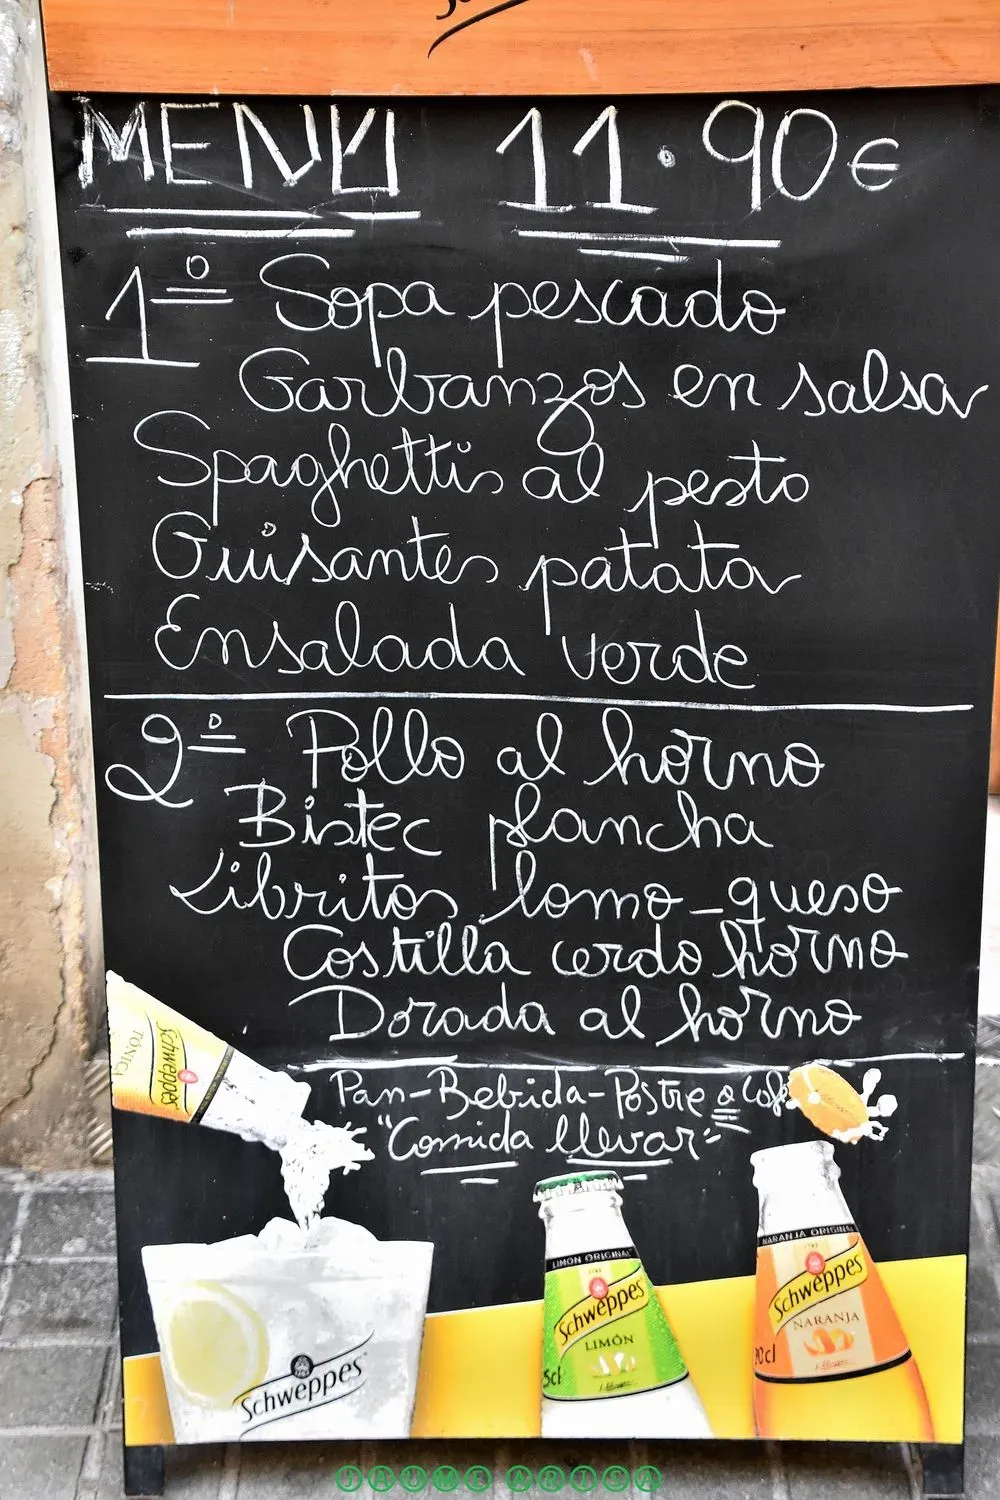 MENÚ 11.90€
1º Sopa pescado
Garbanzos en salsa
Spaghettis al pesto
Guisantes patata
Ensalada verde
2º Pollo al horno
Bistec plancha
Libritos lomo-queso
Costilla cerdo horno
Dorada al horno
Pan-Bebida-Postre o café
"Comida llevar"
Schweppes
TÓNICA
LIMON ORIGINAL
Schweppes
LIMÓN
NARANJA ORIGINAL
Schweppes
NARANJA
20cl
Schweppes
JAUME ARISA